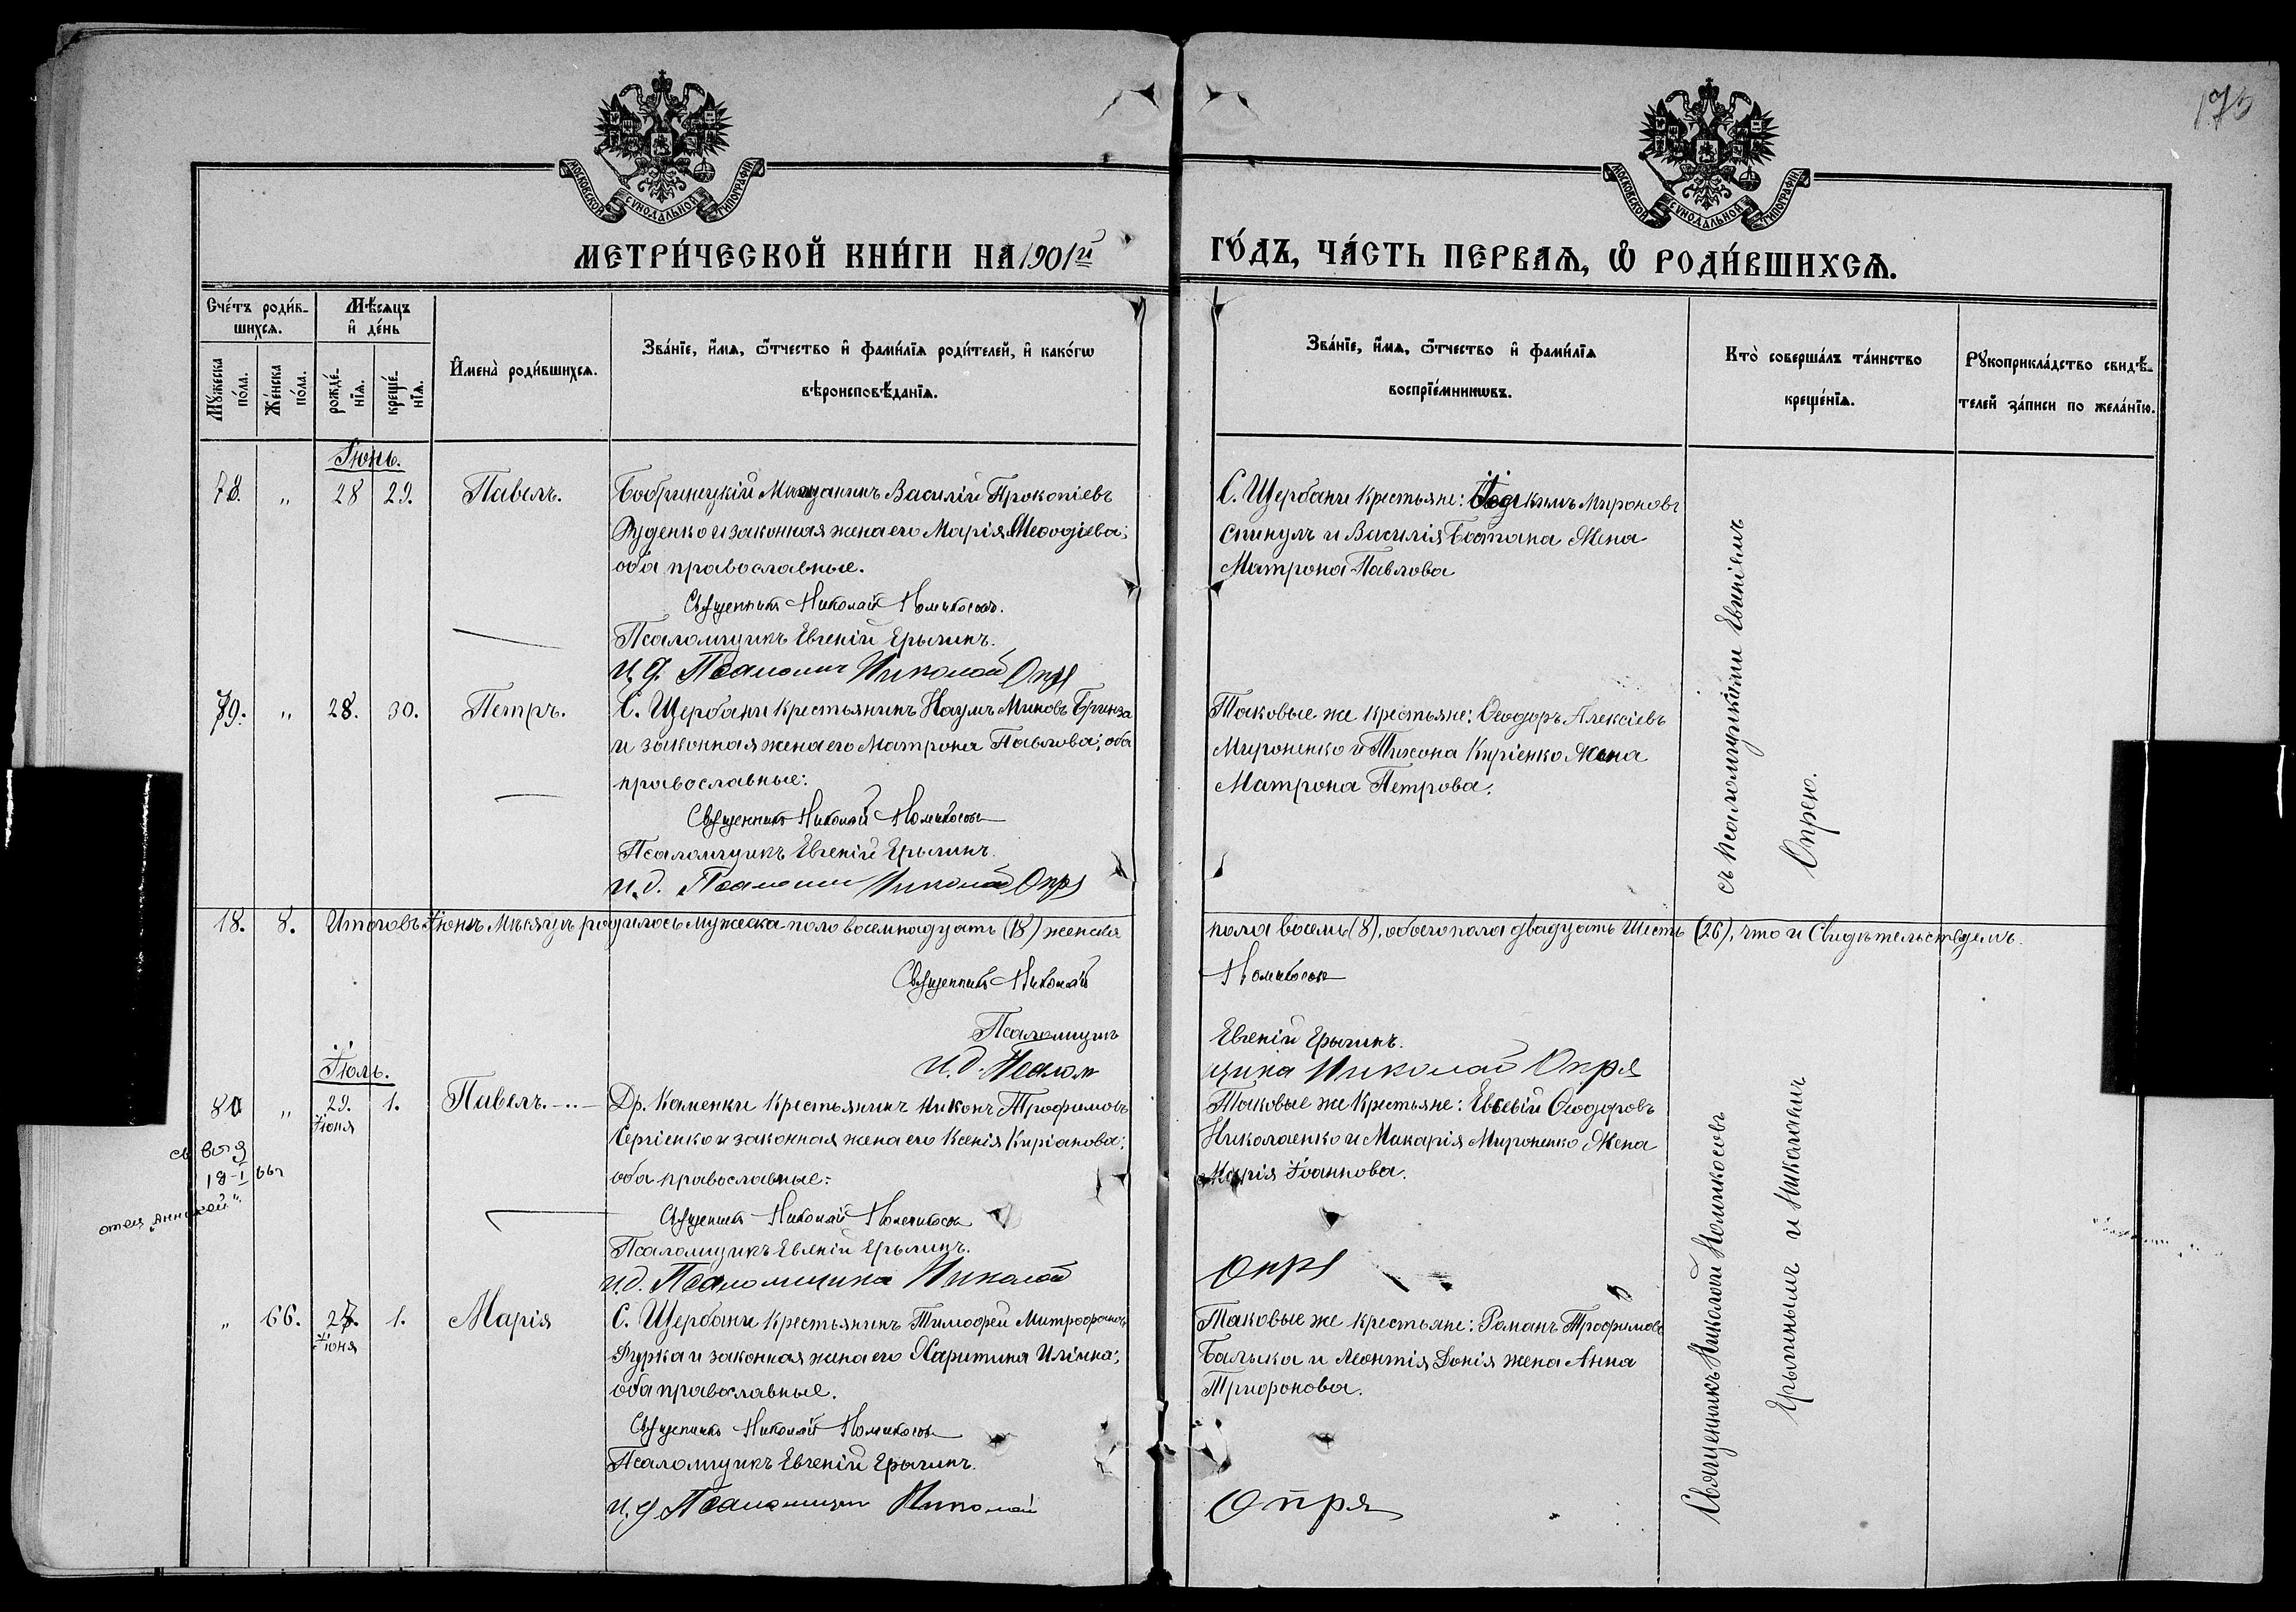 175
МОСКОВСКОЙ СѴНОДАЛЬНОЙ ТИПОГРАФІИ
МОСКОВСКОЙ СѴНОДАЛЬНОЙ ТИПОГРАФІИ
МЕТРИ́ЧЕСКОЙ КНИ́ГИ НА 1901й
ГО́ДЪ, ЧА́СТЬ ПЕРВАѦ, Ѡ РОДИ́ВШИХСѦ.
Сче́тъ роди́вшихсѧ.
Мꙋ́жеска по́ла.
Же́нска по́ла.
Мѣ́сѧцъ и҆ де́нь
рожде́нїѧ.
креще́нїѧ.
И҆мена̀ роди́вшихсѧ.
Зва́нїе, и҆́мѧ, ѻ҆́тчество и҆ фами́лїѧ роди́телей, и҆ како́гѡ
вѣроисповѣ́данїѧ.
Зва́нїе, и҆́мѧ, ѻ҆́тчество и҆ фами́лїѧ
воспрїе́мникѡвъ.
Кто̀ соверша́лъ та́инство
креще́нїѧ.
Рꙋкоприкла́дство свидѣ́телей за́писи по жела́нїю.
Іюнь.
78. " 28 29. Павелъ.
Бобринецкій Мѣщанинъ Василій Прокопіевъ
Руденко и законная жена его Марія Меѳодіева;
оба православные.
Священникъ Николай Номикосовъ.
Псаломщикъ Евгеній Ерыгинъ.
И. д. Псаломщ Николай Опря
С. Щербани крестьяне: Іоакимъ Мироновъ
Спинулъ и Василія Боштана жена
Матрона Павлова
79. " 28. 30. Петръ.
С. Щербани крестьянинъ Наумъ Миновъ Бринза
и законная жена его Матрона Павлова; оба
православные:
Священникъ Николай Номикосовъ
Псаломщикъ Евгеній Ерыгинъ.
И. д. Псаломщ Николай Опря
Таковые же крестьяне: Ѳеодоръ Алексіевъ
Мироненко и Тихона Киріенко жена
Матрона Петрова.
съ псаломщиками Евгеніемъ
Опрею.
18. 8. Итого въ Іюнѣ Мѣсяцѣ родилось мужеска пола восемнадцать (18) женска
пола восемь (8), обоего пола двадцать шесть (26), что и свидѣтельствуемъ.
Священникъ Николай Номикосовъ
Псаломщикъ Евгеній Ерыгинъ.
И. д. Псаломщика Николай Опря
Іюль.
80 " 29. Іюня 1. Павелъ.
Др. Каменки крестьянинъ Никонъ Трофимовъ
Сергіенко и законная жена его Ксенія Киріанова;
оба православные:
Священникъ Николай Номикосовъ
Псаломщикъ Евгеній Ерыгинъ.
И. д. Псаломщика Николай Опря
Таковые же крестьяне: Евсевій Ѳеодоровъ
Николаенко и Макарія Мироненко жена
Марія Іоаннова.
18-I
отец
" 66. 27. Іюня 1. Марія
С. Щербани крестьянинъ Тимофей Митрофановъ
Фурка и законная жена его Харитина Иліина;
оба православные.
Священникъ Николай Номикосовъ
Псаломщикъ Евгеній Ерыгинъ.
И. д. Псаломщик Николай Опря
Таковые же крестьяне: Романъ Трофимовъ
Балыка и Леонтія Донія жена Анна
Трифонова.
Священникъ Николай Номикосовъ
Ерыгинымъ и Николаемъ